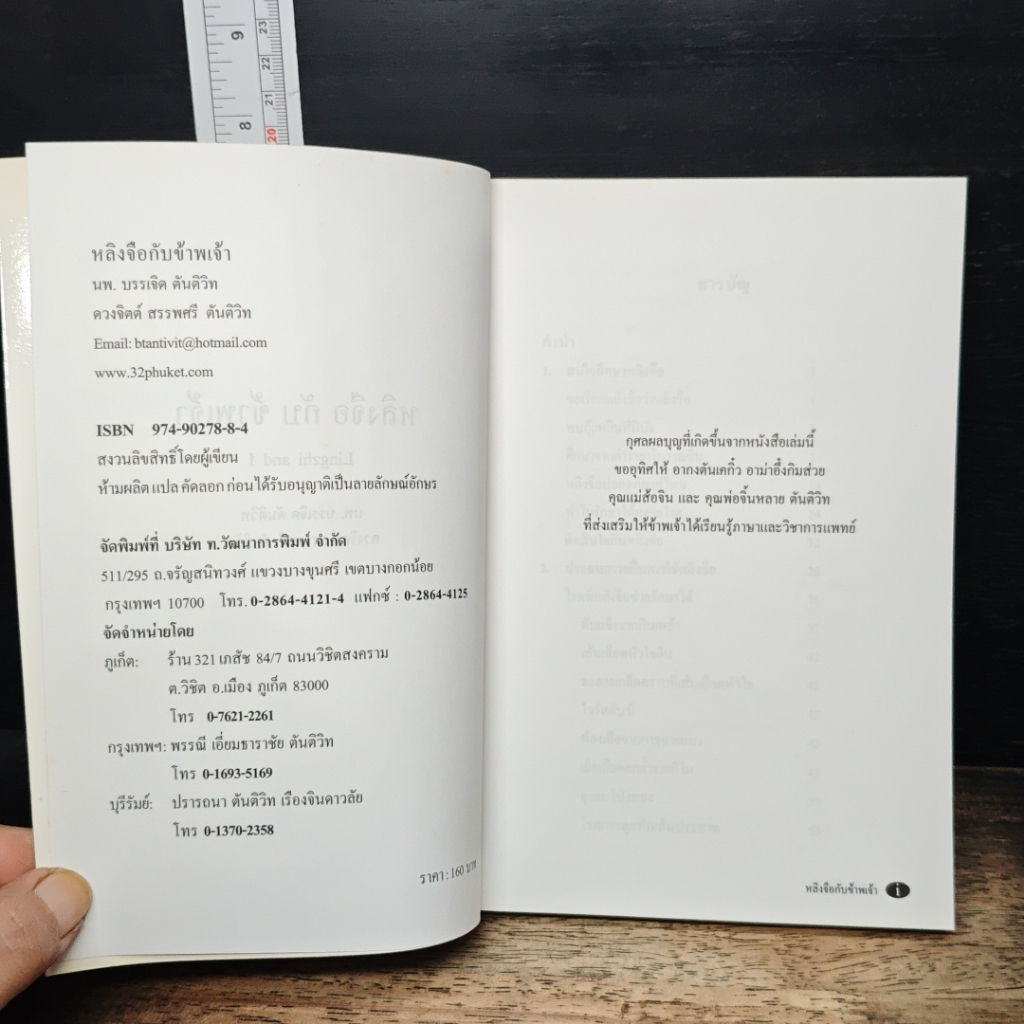 9
23
22
21
8
20
หลิงจือกับข้าพเจ้า
นพ. บรรเจิด ตันติวิท
ดวงจิตต์ สรรพศรี ตันติวิท
Email: btantivit@hotmail.com
www.32phuket.com
ISBN 974-90278-8-4
สงวนลิขสิทธิ์โดยผู้เขียน
ห้ามผลิต แปล คัดลอก ก่อนได้รับอนุญาติเป็นลายลักษณ์อักษร
จัดพิมพ์ที่ บริษัท ท.วัฒนาการพิมพ์ จำกัด
511/295 ถ.จรัญสนิทวงศ์ แขวงบางขุนศรี เขตบางกอกน้อย
กรุงเทพฯ 10700 โทร. 0-2864-4121-4 แฟกซ์ : 0-2864-4125
จัดจำหน่ายโดย
ภูเก็ต: ร้าน 321 เภสัช 84/7 ถนนวิชิตสงคราม
ต.วิชิต อ.เมือง ภูเก็ต 83000
โทร 0-7621-2261
กรุงเทพฯ: พรรณี เอี่ยมธาราชัย ตันติวิท
โทร 0-1693-5169
บุรีรัมย์: ปรารถนา ตันติวิท เรืองจินดาวลัย
โทร 0-1370-2358
ราคา : 160 บาท
กุศลผลบุญที่เกิดขึ้นจากหนังสือเล่มนี้
ขออุทิศให้ อากงตันเคกิ๋ว อาม่าอึ๋งกิมส่วย
คุณแม่ส้อจิน และ คุณพ่อจิ้นหลาย ตันติวิท
ที่ส่งเสริมให้ข้าพเจ้าได้เรียนรู้ภาษาและวิชาการแพทย์
หลิงจือกับข้าพเจ้า i